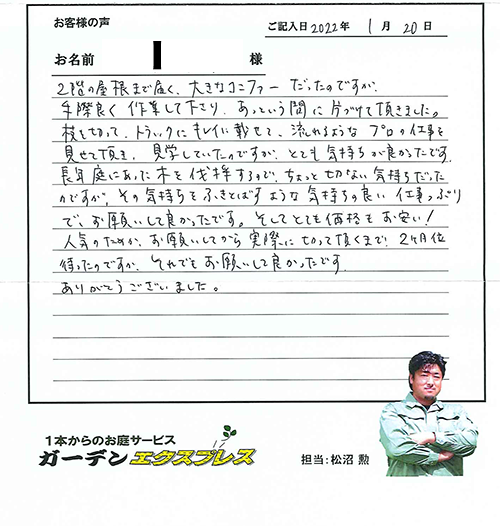 お客様の声
ご記入日 2022年 1月 20日
お名前 様
2階の屋根まで届く、大きなコニファーだったのですが、
手際良く作業して下さり、あっという間に片づけて頂きました。
枝を切って、トラックにキレイに載せて、流れるようなプロの仕事を
見せて頂き、見学していたのですが、とても気持ちが良かったです。
長年庭にあった木を伐採するので、ちょっと切ない気持ちだった
のですが、その気持ちをふきとばすような気持ちの良い仕事っぷり
で、お願いして良かったです。そしてとても価格もお安い!
人気のためか、お願いしてから実際に切って頂くまで、2ヶ月位
待ったのですが、それでもお願いして良かったです。
ありがとうございました。
1本からのお庭サービス
ガーデンエクスプレス
担当:松沼 勲